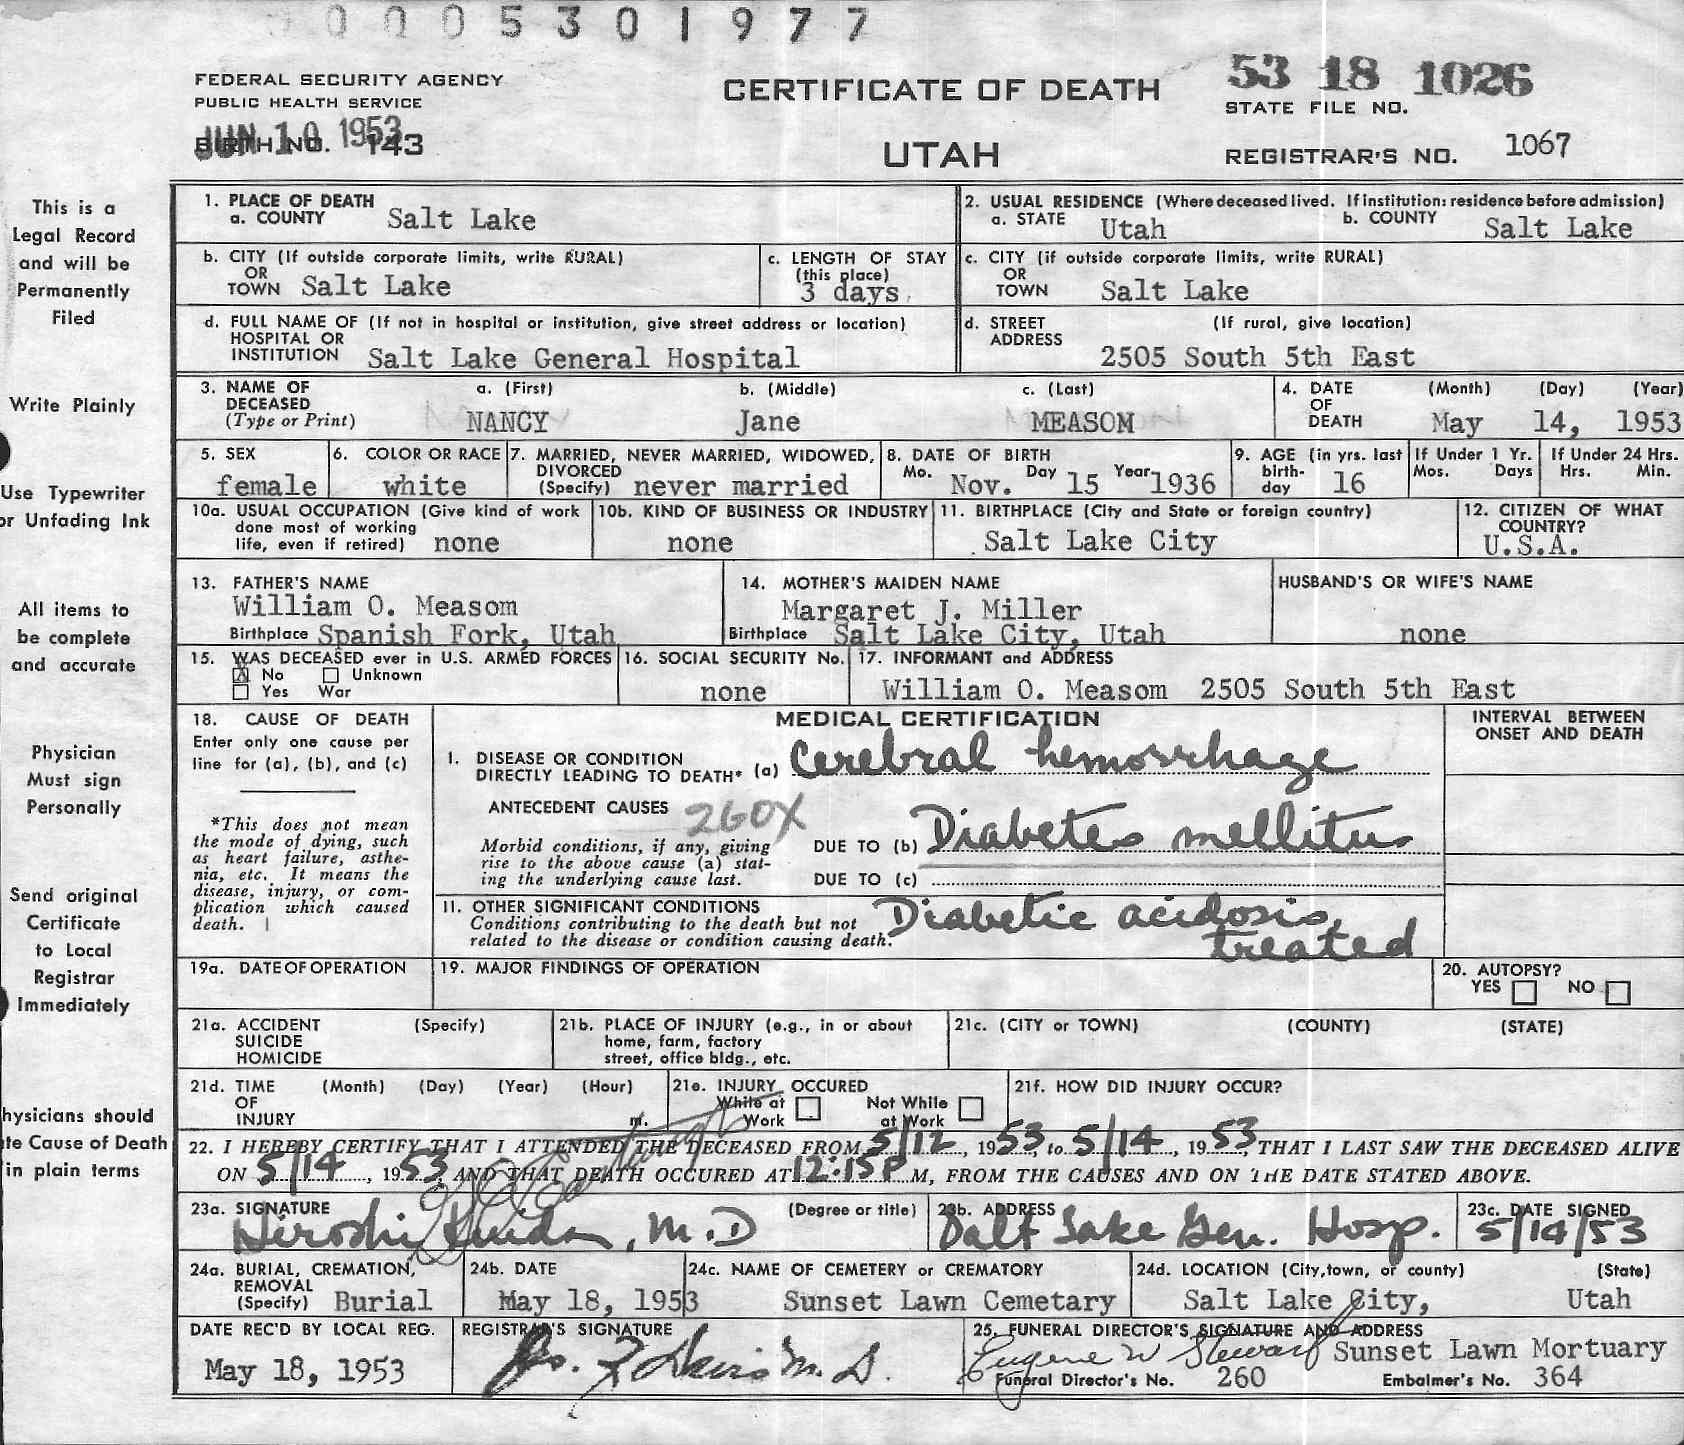 0005301977
FEDERAL SECURITY AGENCY
PUBLIC HEALTH SERVICE
JUN 10 1953
BIRTH NO. 143
CERTIFICATE OF DEATH
UTAH
53 18 1026
STATE FILE NO.
REGISTRAR'S NO. 1067
This is a
Legal Record
and will be
Permanently
Filed
Write Plainly
Use Typewriter
or Unfading Ink
All items to
be complete
and accurate
Physician
Must sign
Personally
Send original
Certificate
to Local
Registrar
Immediately
hysicians should
te Cause of Death
in plain terms
1. PLACE OF DEATH
a. COUNTY Salt Lake
2. USUAL RESIDENCE (Where deceased lived. If institution: residence before admission)
a. STATE Utah b. COUNTY Salt Lake
b. CITY (If outside corporate limits, write RURAL)
OR
TOWN Salt Lake
c. LENGTH OF STAY
(this place)
3 days
c. CITY (if outside corporate limits, write RURAL)
OR
TOWN Salt Lake
d. FULL NAME OF (If not in hospital or institution, give street address or location)
HOSPITAL OR
INSTITUTION Salt Lake General Hospital
d. STREET (If rural, give location)
ADDRESS
2505 South 5th East
3. NAME OF a. (First) b. (Middle) c. (Last)
DECEASED
(Type or Print) NANCY Jane MEASOM
4. DATE (Month) (Day) (Year)
OF
DEATH May 14, 1953
5. SEX
female
6. COLOR OR RACE
white
7. MARRIED, NEVER MARRIED, WIDOWED,
DIVORCED
(Specify) never married
8. DATE OF BIRTH
Mo. Nov. Day 15 Year 1936
9. AGE (in yrs. last
birth-
day 16
If Under 1 Yr.
Mos. Days
If Under 24 Hrs.
Hrs. Min.
10a. USUAL OCCUPATION (Give kind of work
done most of working
life, even if retired) none
10b. KIND OF BUSINESS OR INDUSTRY
none
11. BIRTHPLACE (City and State or foreign country)
Salt Lake City
12. CITIZEN OF WHAT
COUNTRY?
U.S.A.
13. FATHER'S NAME
William O. Measom
Birthplace Spanish Fork, Utah
14. MOTHER'S MAIDEN NAME
Margaret J. Miller
Birthplace Salt Lake City, Utah
HUSBAND'S OR WIFE'S NAME
none
15. WAS DECEASED ever in U.S. ARMED FORCES
X No Unknown
Yes War
16. SOCIAL SECURITY No.
none
17. INFORMANT and ADDRESS
William O. Measom 2505 South 5th East
18. CAUSE OF DEATH
Enter only one cause per
line for (a), (b), and (c)
*This does not mean
the mode of dying, such
as heart failure, asthe-
nia, etc. It means the
disease, injury, or com-
plication which caused
death.
MEDICAL CERTIFICATION
INTERVAL BETWEEN
ONSET AND DEATH
I. DISEASE OR CONDITION
DIRECTLY LEADING TO DEATH* (a) Cerebral hemorrhage
ANTECEDENT CAUSES 260X
Morbid conditions, if any, giving
rise to the above cause (a) stat-
ing the underlying cause last.
DUE TO (b) Diabetes mellitus
DUE TO (c)
11. OTHER SIGNIFICANT CONDITIONS
Conditions contributing to the death but not
related to the disease or condition causing death.
Diabetic acidosis,
treated
19a. DATE OF OPERATION
19. MAJOR FINDINGS OF OPERATION
20. AUTOPSY?
YES NO
21a. ACCIDENT (Specify)
SUICIDE
HOMICIDE
21b. PLACE OF INJURY (e.g., in or about
home, farm, factory
street, office bldg., etc.
21c. (CITY or TOWN) (COUNTY) (STATE)
21d. TIME (Month) (Day) (Year) (Hour)
OF
INJURY m.
21e. INJURY OCCURED
While at Work
Not While at Work
21f. HOW DID INJURY OCCUR?
22. I HEREBY CERTIFY THAT I ATTENDED THE DECEASED FROM 5/12, 1953, to 5/14, 1953, THAT I LAST SAW THE DECEASED ALIVE
ON 5/14, 1953, AND THAT DEATH OCCURED AT 12:15P M, FROM THE CAUSES AND ON THE DATE STATED ABOVE.
23a. SIGNATURE (Degree or title)
Hiroshi Kuida, M.D
23b. ADDRESS
Salt Lake Gen. Hosp.
23c. DATE SIGNED
5/14/53
24a. BURIAL, CREMATION,
REMOVAL
(Specify) Burial
24b. DATE
May 18, 1953
24c. NAME OF CEMETERY or CREMATORY
Sunset Lawn Cemetary
24d. LOCATION (City, town, or county) (State)
Salt Lake City, Utah
DATE REC'D BY LOCAL REG.
May 18, 1953
REGISTRAR'S SIGNATURE
M.D.
25. FUNERAL DIRECTOR'S SIGNATURE AND ADDRESS
Eugene W Stewart Sunset Lawn Mortuary
Funeral Director's No. 260 Embalmer's No. 364